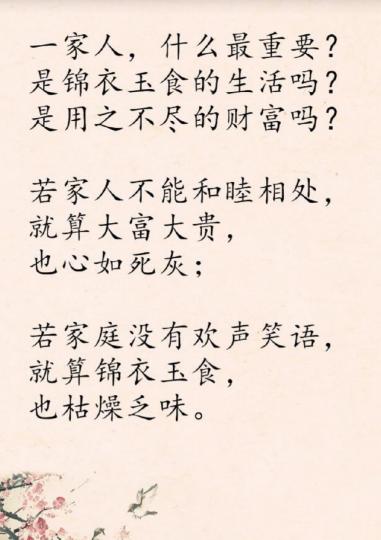 一家人，什么最重要？
是锦衣玉食的生活吗？
是用之不尽的财富吗？
若家人不能和睦相处，
就算大富大贵，
也心如死灰；
若家庭没有欢声笑语，
就算锦衣玉食，
也枯燥乏味。